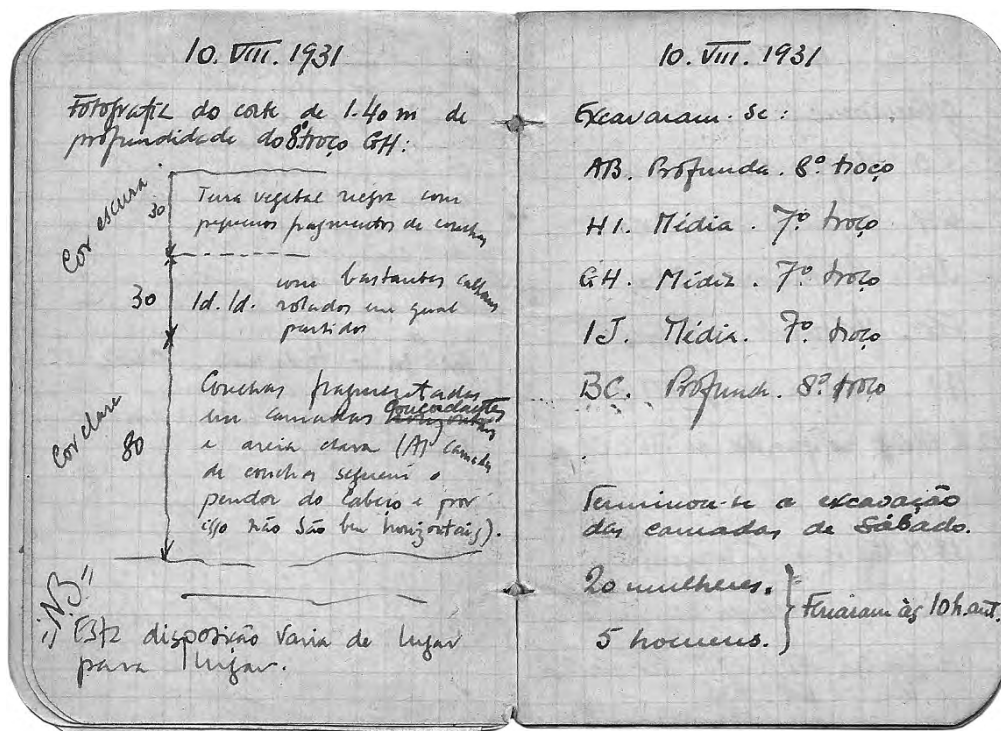 10. VIII. 1931
Fotografia do corte de 1.40 m de
profundidade do 8º troço GH:
Cor escura
30
Terra vegetal negra com
pequenos fragmentos de conchas
30
Id. Id. com bastantes calhaus
rolados em geral
partidos
Cor clara
80
Conchas fragmentadas
em camadas horizontais
e areia clara (As camadas
de conchas seguem o
pendor do Cabeço e por
isso não são bem horizontais).
=NB=
Esta disposição varia de lugar
para lugar.
10. VIII. 1931
Excavaram-se:
AB. Profunda. 8º troço
HI. Média. 7º troço
GH. Média. 7º troço
IJ. Média. 7º troço
BC. Profund. 8º troço
Terminou-se a excavação
das camadas de Sábado.
20 mulheres.
5 homens.
às 10h.